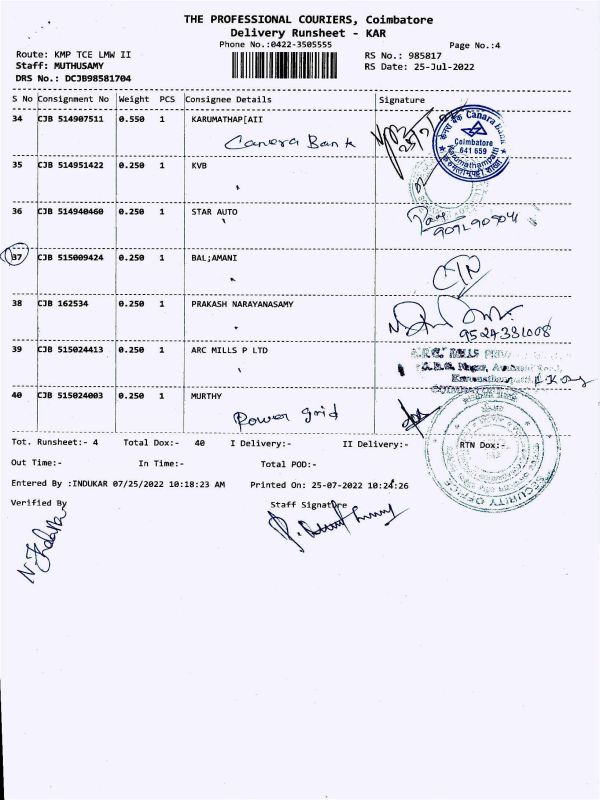 THE PROFESSIONAL COURIERS, Coimbatore
Delivery Runsheet - KAR
Phone No.:0422-3505555
Page No.:4
Route: KMP TCE LMW II
RS No.: 985817
Staff: MUTHUSAMY
RS Date: 25-Jul-2022
DRS No.: DCJB98581704
S No Consignment No Weight PCS Consignee Details Signature
34 CJB 514907511 0.550 1 KARUMATHAP[AII
Canera Bank
केनरा बैंक Canara Bank
Coimbatore
641 659
Karumathampatti
35 CJB 514951422 0.250 1 KVB
36 CJB 514940460 0.250 1 STAR AUTO
37 CJB 515009424 0.250 1 BAL;AMANI
38 CJB 162534 0.250 1 PRAKASH NARAYANASAMY
9524331008
39 CJB 515024413 0.250 1 ARC MILLS P LTD
40 CJB 515024003 0.250 1 MURTHY
Power grid
SECURITY OFFICE
Tot. Runsheet:- 4 Total Dox:- 40 I Delivery:- II Delivery:- RTN Dox:-
Out Time:- In Time:- Total POD:-
Entered By :INDUKAR 07/25/2022 10:18:23 AM Printed On: 25-07-2022 10:24:26
Verified By Staff Signatre